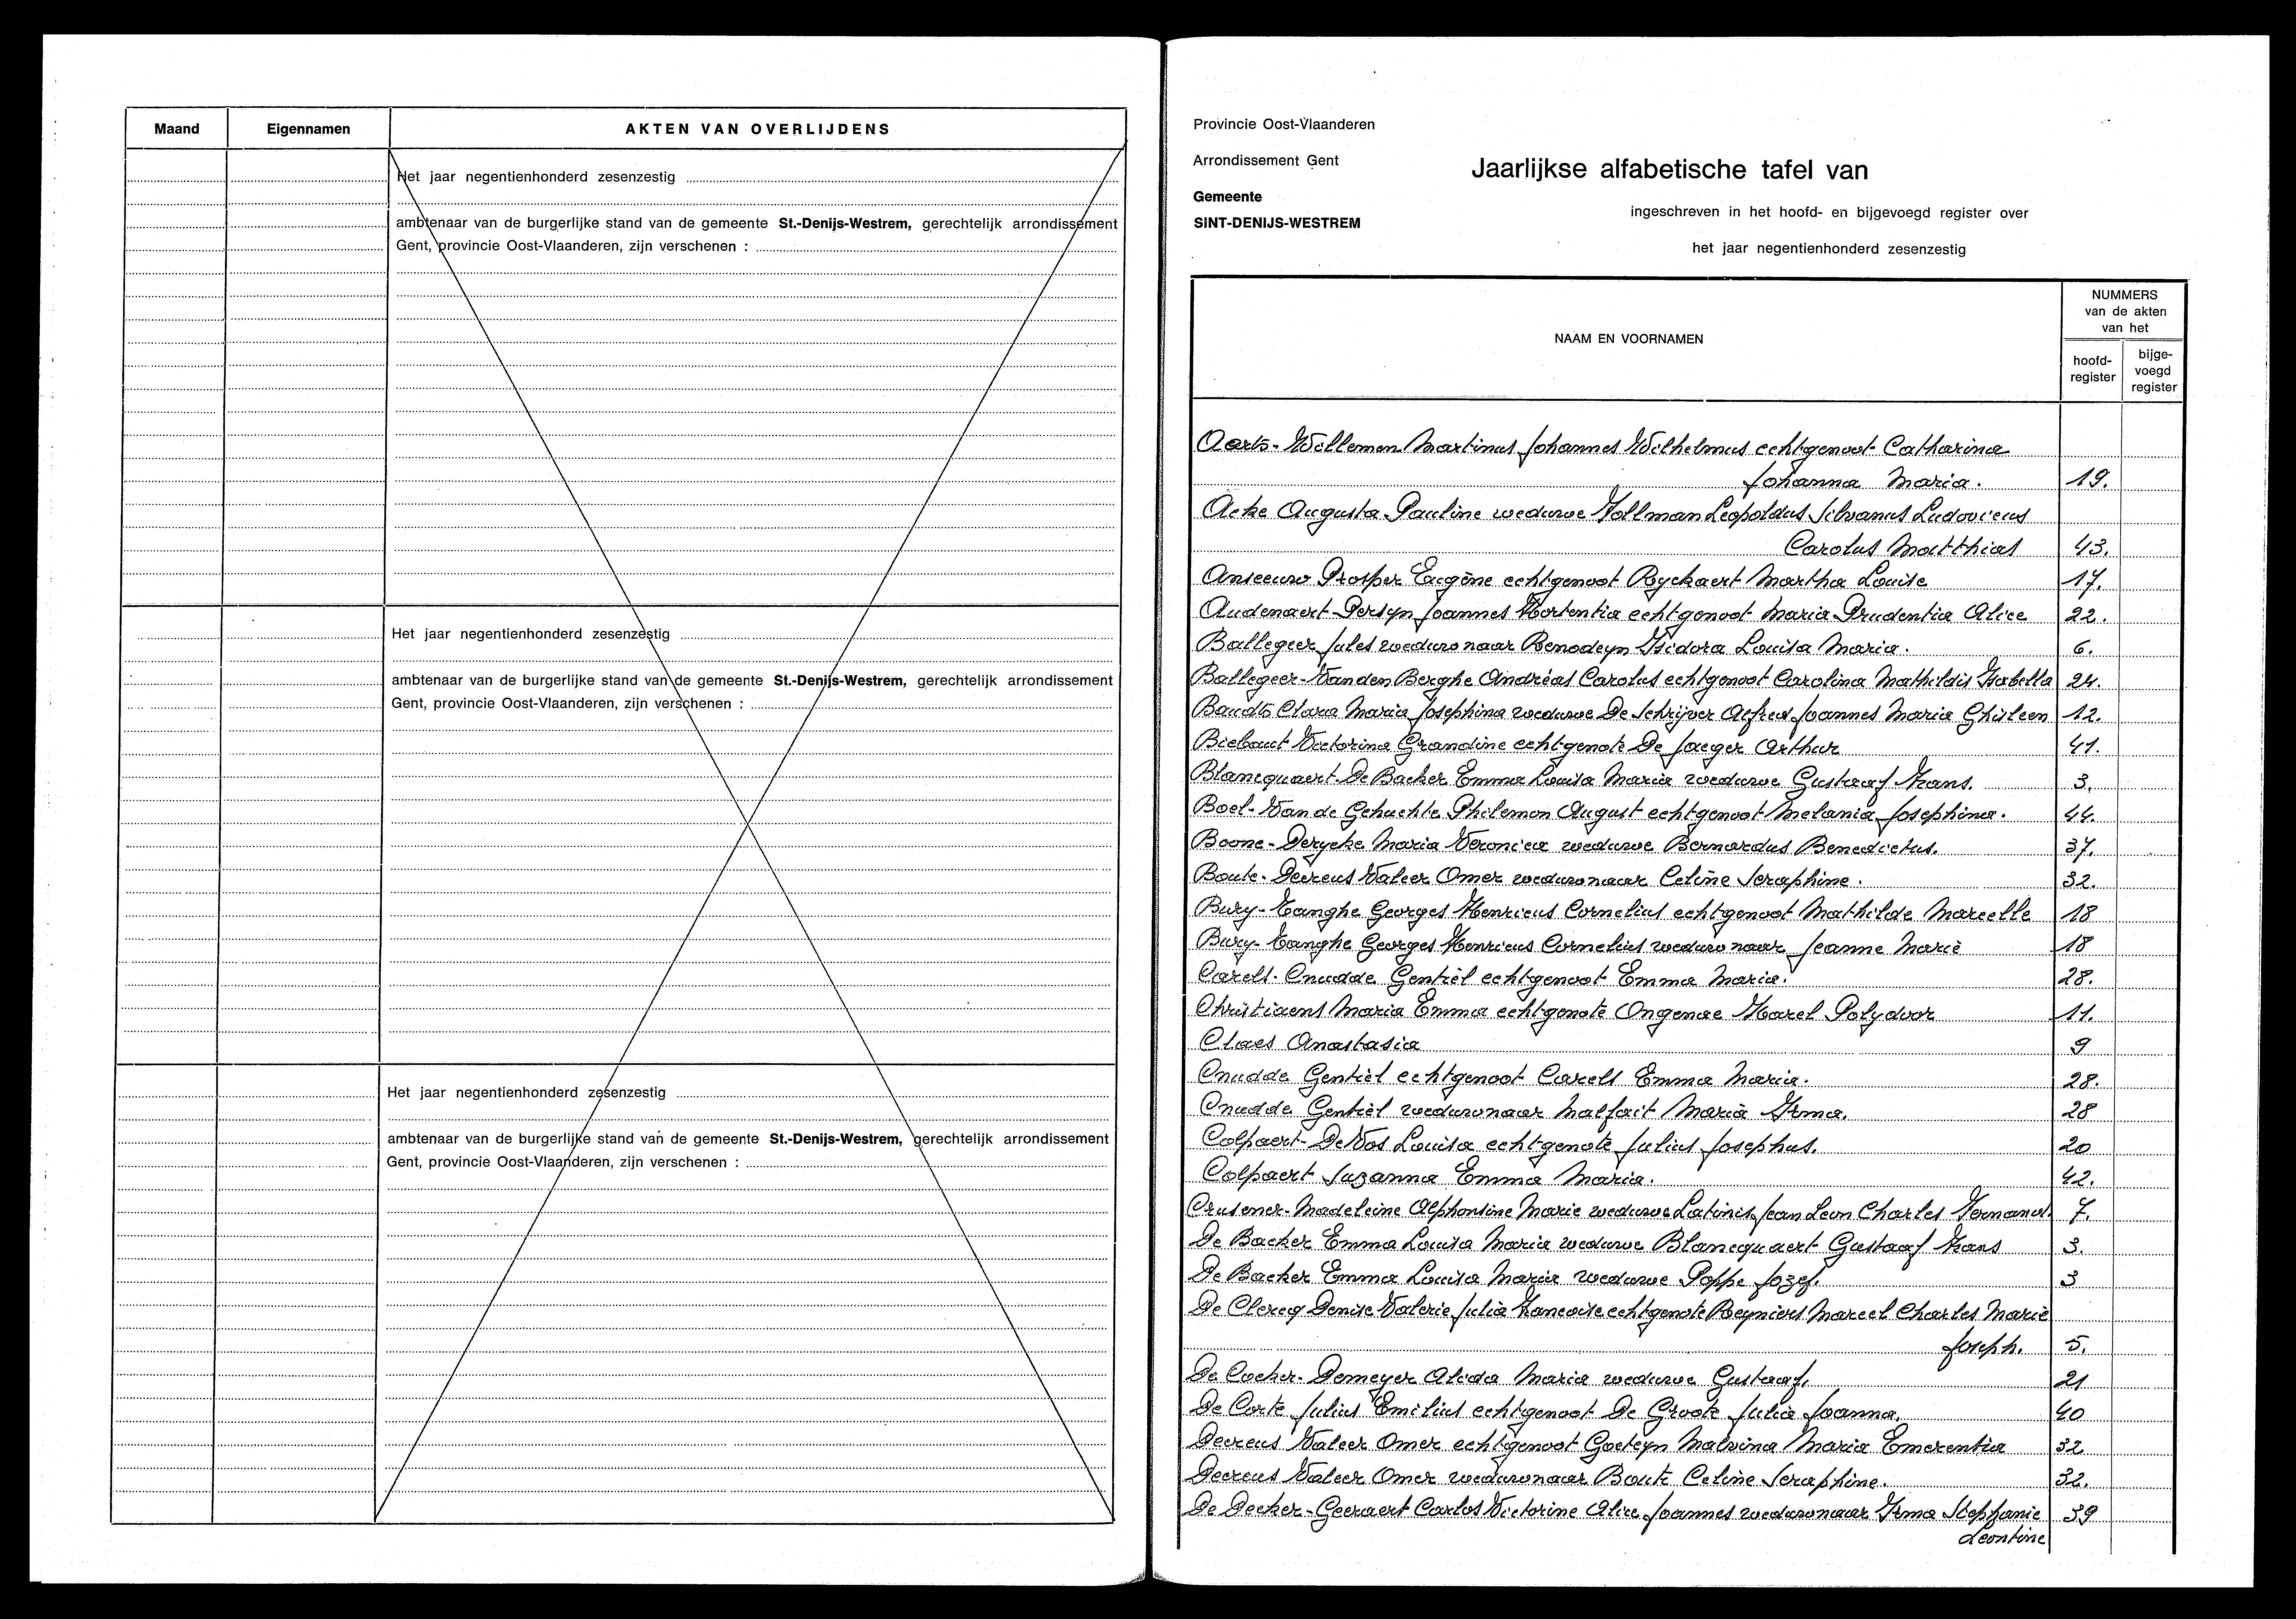 Maand
Eigennamen
AKTEN VAN OVERLIJDENS
Het jaar negentienhonderd zesenzestig
ambtenaar van de burgerlijke stand van de gemeente St.-Denijs-Westrem, gerechtelijk arrondissement
Gent, provincie Oost-Vlaanderen, zijn verschenen :
Het jaar negentienhonderd zesenzestig
ambtenaar van de burgerlijke stand van de gemeente St.-Denijs-Westrem, gerechtelijk arrondissement
Gent, provincie Oost-Vlaanderen, zijn verschenen :
Het jaar negentienhonderd zesenzestig
ambtenaar van de burgerlijke stand van de gemeente St.-Denijs-Westrem, gerechtelijk arrondissement
Gent, provincie Oost-Vlaanderen, zijn verschenen :
Provincie Oost-Vlaanderen
Arrondissement Gent
Gemeente
SINT-DENIJS-WESTREM
Jaarlijkse alfabetische tafel van
ingeschreven in het hoofd- en bijgevoegd register over
het jaar negentienhonderd zesenzestig
NAAM EN VOORNAMEN
NUMMERS
van de akten
van het
hoofd-
register
bijge-
voegd
register
Aarts-Willemen Martinus Johannes Wilhelmus echtgenoot Catharina
Johanna Maria. 19.
Acke Augusta Pauline weduwe Hollman Leopoldus Silvanus Ludovicus
Carolus Matthias 43.
Anseeuw Prosper Eugène echtgenoot Ryckaert Martha Louise 17.
Audenaert-Persyn Joannes Hortentia echtgenoot Maria Prudentia Alice 22.
Ballegeer Jules weduwnaar Benodeyn Isidora Louisa Maria. 6.
Ballegeer-Van den Berghe Andréas Carolus echtgenoot Carolina Mathildis Isabella 24.
Baudts Clara Maria Josephina weduwe De Schrijver Alfred Joannes Maria Ghisleen 12.
Biebaut Victorina Grandine echtgenote De Jaeger Arthur 41.
Blancquaert-De Backer Emma Louisa Maria weduwe Gustaaf Frans. 3.
Boel-Van de Gehuchte Philemon August echtgenoot Melania Josephina. 44.
Boone-Derycke Maria Veronica weduwe Bernardus Benedictus. 37.
Boute-Decreus Valeer Omer weduwnaar Celine Seraphine. 32.
Bury-Tanghe Georges Henricus Cornelius echtgenoot Mathilde Marcelle 18
Bury-Tanghe Georges Henricus Cornelius weduwnaar Jeanne Marie 18
Carels-Cnudde Gentiel echtgenoot Emma Maria. 28.
Christiaens Maria Emma echtgenote Ongenae Karel Polydoor 11.
Claes Anastasia 9
Cnudde Gentiel echtgenoot Carels Emma Maria. 28.
Cnudde Gentiel weduwnaar Malfait Maria Irma. 28
Colpaert-De Vos Louisa echtgenote Julius Josephus. 20
Colpaert Suzanna Emma Maria. 42.
Crusener-Madeleine Alphonsine Marie weduwe Latinis Jean Leon Charles Fernand. 7.
De Backer Emma Louisa Maria weduwe Blancquaert Gustaaf Frans 3.
De Backer Emma Louisa Maria weduwe Poppe Jozef. 3
De Clercq Denise Valerie Julia Francoise echtgenote Reyniers Marcel Charles Marie
Joseph. 5.
De Cocker-Demeyer Alida Maria weduwe Gustaaf. 21
De Corte Julius Emilius echtgenoot De Groote Julia Joanna. 40
Decreus Valeer Omer echtgenoot Goeteyn Malvina Maria Emerentia 32
Decreus Valeer Omer weduwnaar Boute Celine Seraphine. 32.
De Decker-Geeraert Carlos Victorine Alice Joannes weduwnaar Irma Stephanie 39
Leontine